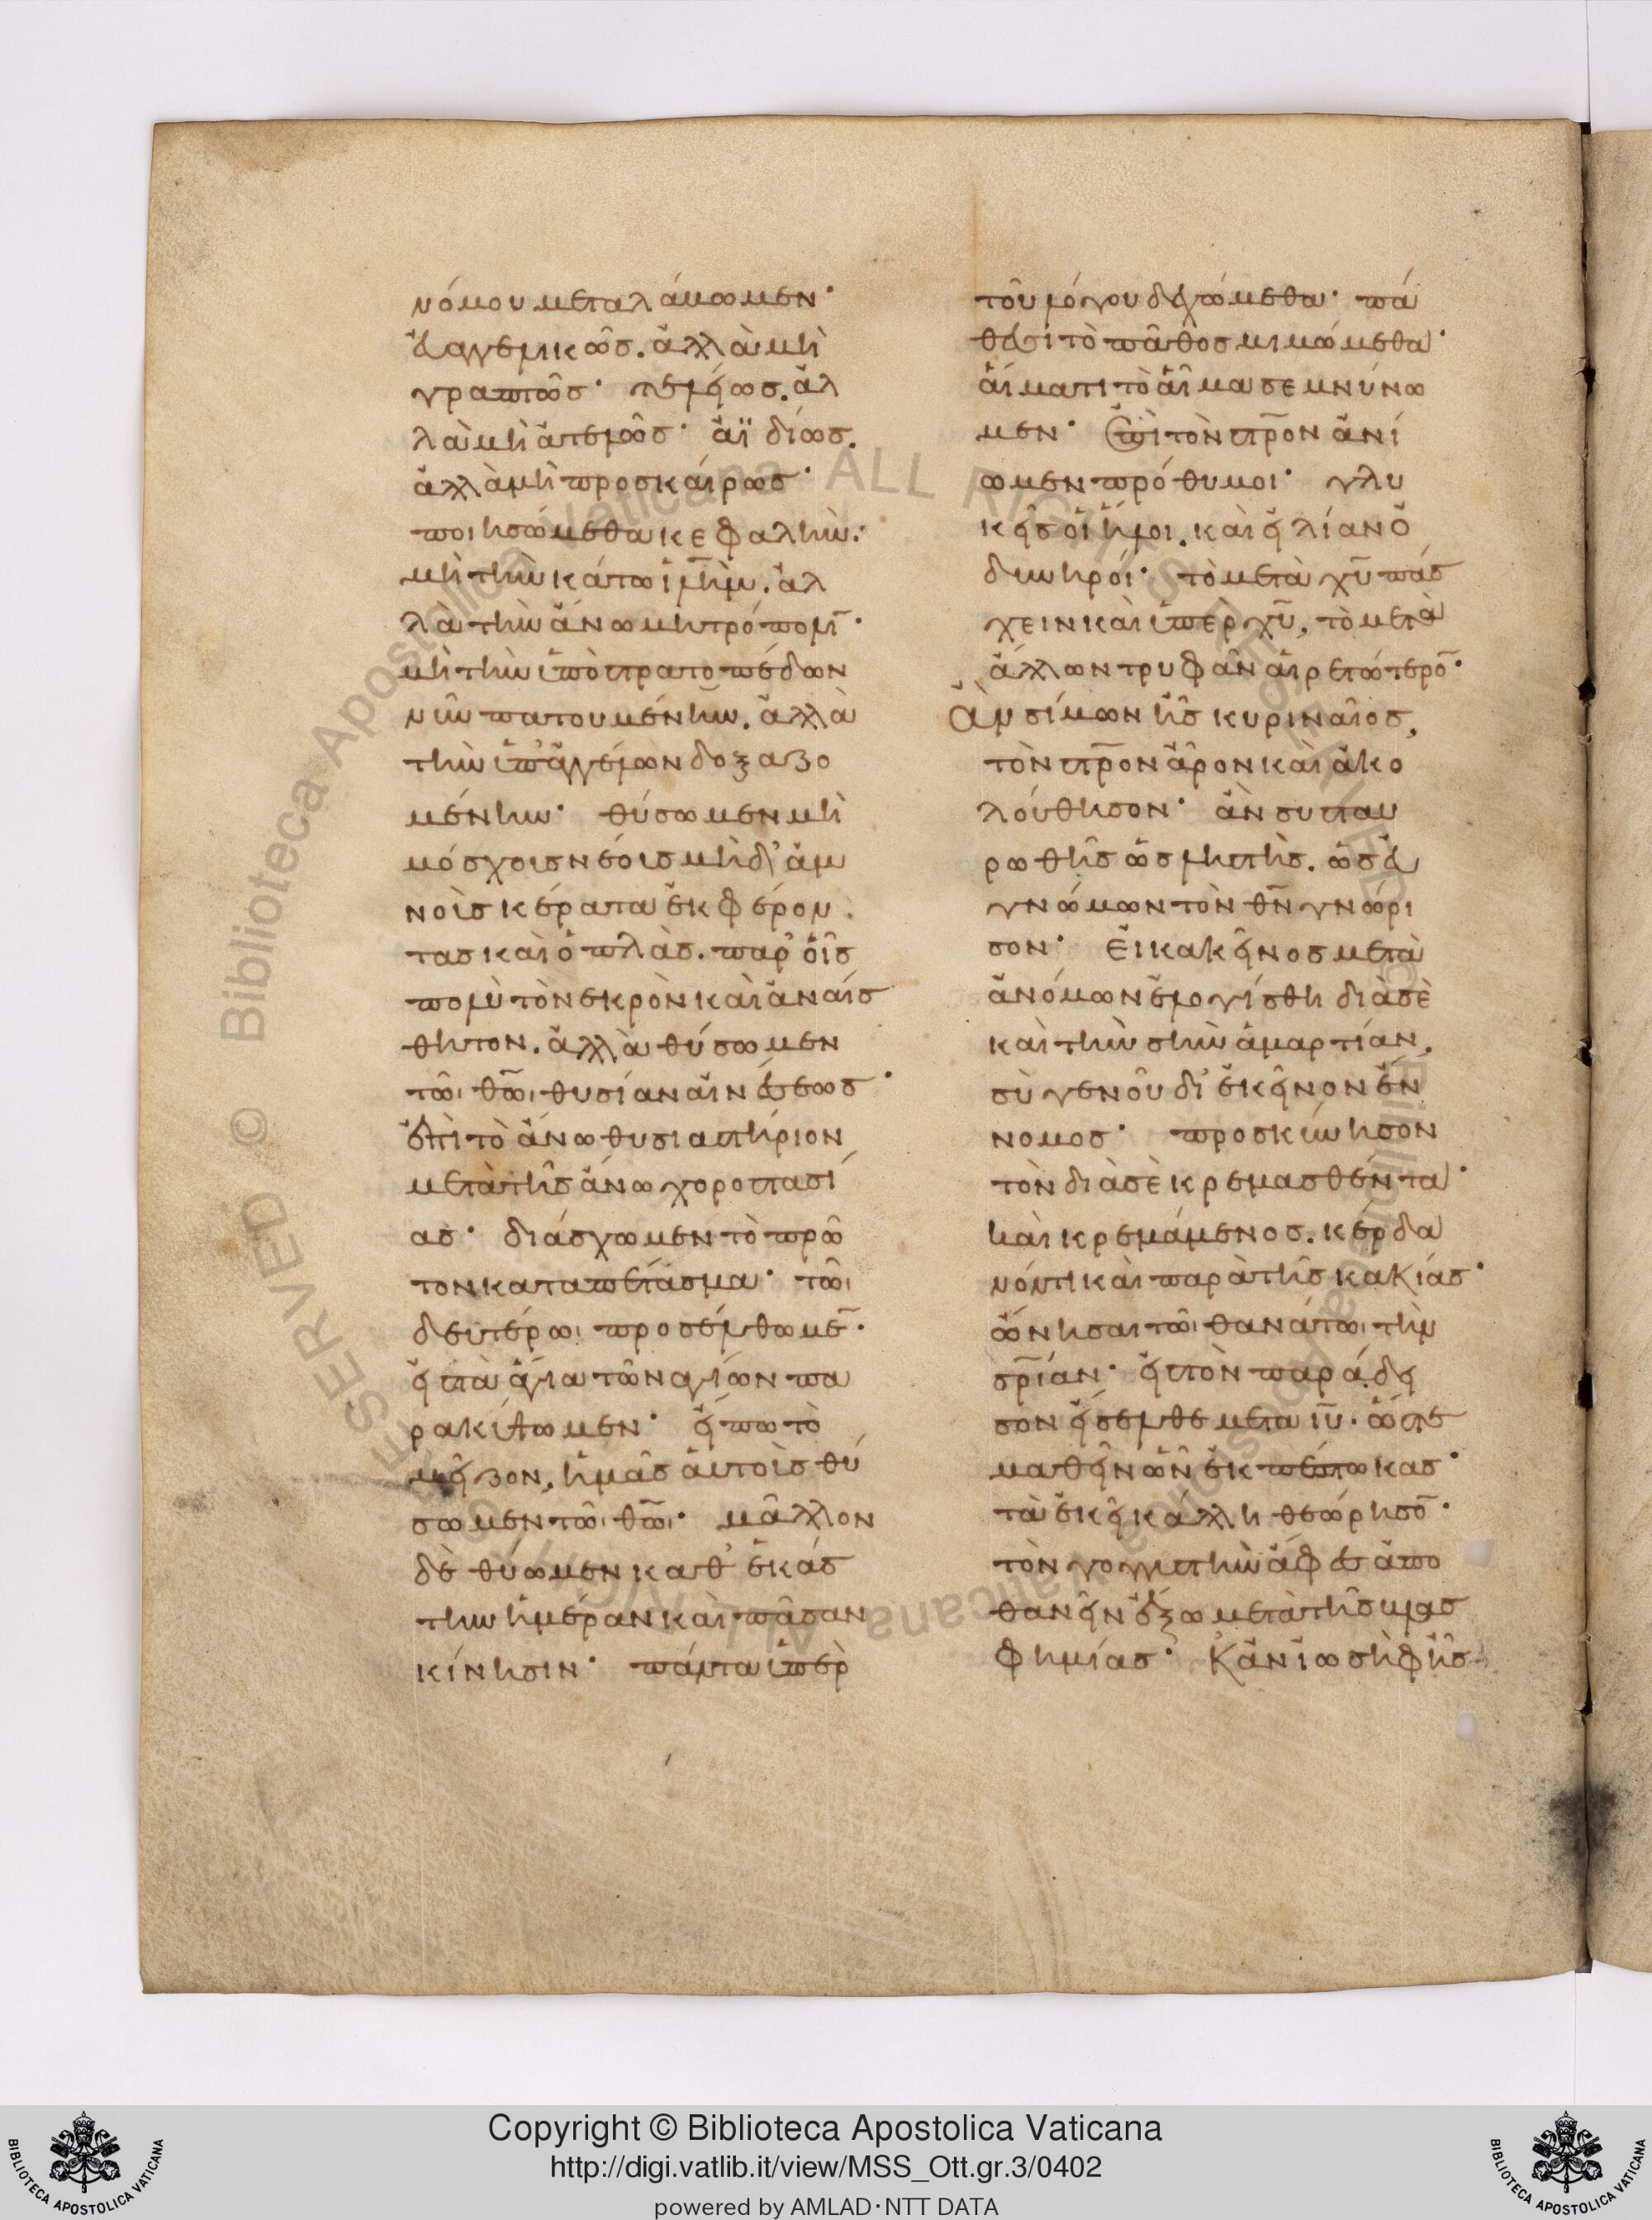 νόμου μεταλάβωμεν·
εὐαγγελικῶς. ἀλλὰ μὴ
γραπτῶς· τελείως. ἀλ
λὰ μὴ ἀτελῶς· ἀϊδίως.
ἀλλὰ μὴ προσκαίρως·
ποιησώμεθα κεφαλὴν·
μὴ τὴν κάτω ἰλ̅η̅μ. ἀλ
λὰ τὴν ἄνω μητρόπολῖ·
μὴ τὴν ὑπὸ στρατοπέδων
νῦν πατουμένην. ἀλλὰ
τὴν ὑπ' ἀγγέλων δοξαζο
μένην· θύσωμεν μὴ
μόσχοις νέοις μὴ δ' ἀμ
νοὶς κέρατα ἐκφέρον
τας καὶ ὁπλὰς. παρ' οἷς
πολὺ τὸ νεκρὸν καὶ ἀναίσ
θητον. ἀλλὰ θύσωμεν
τῶι θ̅ῶι θυσίαν αἰνέσεως·
ἐπὶ τὸ ἄνω θυσιαστήριον
μετὰ τῆς ἄνω χοροστασί
ας· διάσχωμεν τὸ πρῶ
τον καταπέτασμα· τῶι
δευτέρωι προσέλθωμε̅·
εἰς τὰ ἅγια τῶν ἁγίων πα
ρακύψωμεν· εἴπω τὸ
μεῖζον, ἡμᾶς αὐτοὶς θύ
σωμεν τῶι θ̅ῶι· μᾶλλον
δὲ θύωμεν καθ' ἑκάσ
την ἡμέραν καὶ πᾶσαν
κίνησιν· πάντα ὑπὲρ
τοῦ λόγου δεχώμεθα· πά
θεσι τὸ πάθος μιμώμεθα·
αἵματι τὸ αἷμα σεμνύνω
μεν· ἐπὶ τὸν στ̅ρ̅ον ἀνί
ωμεν πρόθυμοι· γλυ
κεῖς οἱ ἧλοι. καὶ εἰ λίαν ὀ
δυνηροί· τὸ μετὰ χ̅υ̅ πάσ
χειν καὶ ὑπὲρ χ̅υ̅, τὸ μετὰ
ἄλλων τρυφᾶν αἱρετώτερο̅·
Ἂν σίμων ἦς κυρηναῖος,
τὸν στ̅ρ̅ον ἆρον καὶ ἀκο
λούθησον· ἂν συσταυ
ρωθῆς ὡς ληστὴς. ὡς εὐ
γνώμων τὸν θ̅ν̅ γνώρι
σον· Εἰ κακεῖνος μετὰ
ἀνόμων ἐλογίσθη διὰ σὲ
καὶ τὴν σὴν ἁμαρτίαν,
σὺ γενοῦ δι' ἐκεῖνον ἔν
νομος· προσκύνησον
τὸν διὰ σὲ κρεμασθέντα·
καὶ κρεμάμενος. κέρδα
νόν τι καὶ παρὰ τῆς κακίας·
ὤνησαι τῶι θανάτωι τὴν
σ̅ρ̅ίαν· εἰς τὸν παράδει
σον εἴσελθε μετα ι̅υ̅· ὥστε
μαθεῖν ὧν ἐκπέπτωκας·
τὰ ἐκεῖ κάλλη θεώρησο̅·
τὸν γογγιστὴν ἄφες ἀπο
θανεῖν ἔξω μετὰ τῆς βλασ
φημίας· Κἂν ἰωσὴφ ἦς